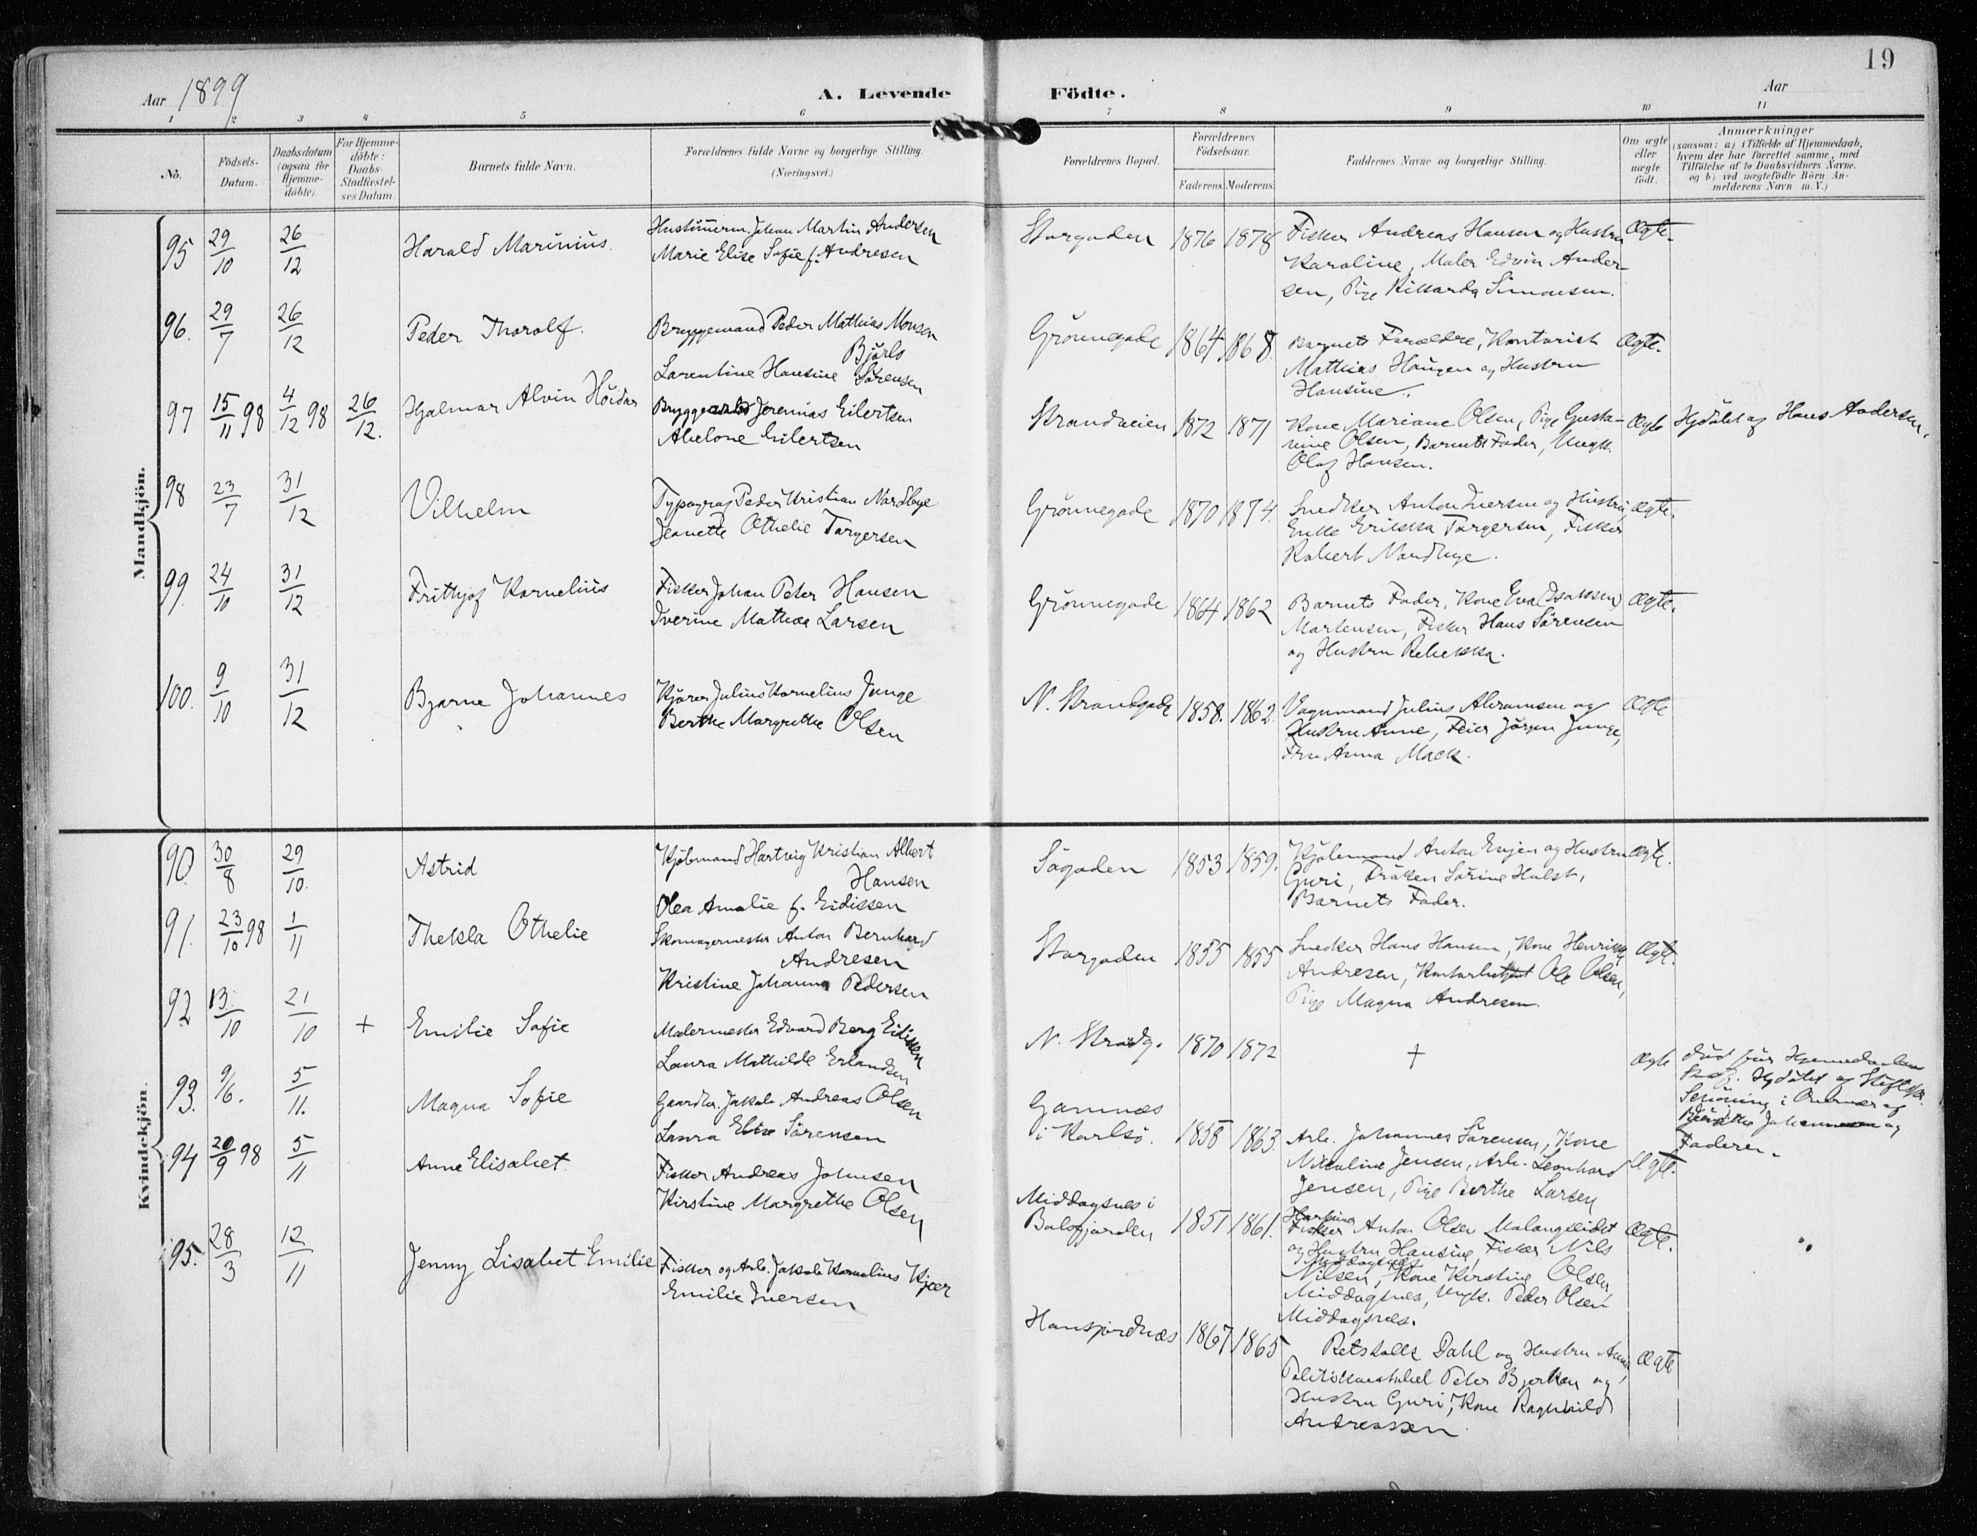 19
Aar 1899
A. Levende Födte.
Aar
1 2 3 4 5 6 7 8 9 10 11
No.
Födsels-Datum.
Daabsdatum (ogsaa for Hjemme-döbte).
For Hjemme-döbte: Daabs-Stadfæstel-ses Datum.
Barnets fulde Navn.
Forældrenes fulde Navne og borgerlige Stilling.
(Næringsvei.)
Forældrenes Bopæl.
Forældrenes Födselsaar.
Faderens. Moderens.
Faddernes Navne og borgerlige Stilling.
Om ægte eller uægte födt.
Anmærkninger
(saasom: a) i Tilfælde af Hjemmedaab,
hvem der har forrettet samme, med
Tilföielse af to Daabsvidners Navne,
og b) ved uægtefödte Börn An-
melderens Navn m. V.)
Mandkjön.
95 29/10 26/12 Harald Marinius.
Johan Martin Andersen
Marie Elise Sofie f. Andresen
Storgaden 1876 1878
Fisker Andreas Hansen og Hustru
Karoline, Maler Edvin Ander-
sen, Pige Rikkarda Simonsen.
Ægte.
96. 29/7 26/12 Peder Thorolf.
Bryggemand Peder Mathias Monsen
Bjørls
Larentine Hansine Sørensen
Grønnegade 1864 1868
Barnets Forældre, Kontorist
Mathias Haugen og Hustru
Hansine.
Ægte.
97 15/11 98 4/12 98 26/12. Hjalmar Alvin Høidar
Jeremias Eilertsen
Abelone Eilertsen
Strandveien 1872 1871
Kone Mariane Olsen, Pige Gusta-
nine Olsen, Barnets Fader, Ungk.
Olaf Hansen.
Ægte
Hjdöbt af Hans Andersen.
98 23/7 31/12 Vilhelm
Typograf Peder Kristian Nordbye
Jeanette Othelie Torgersen
Grønnegade 1870 1874.
Snedker Anton Iversen og Hustru,
Enke Erikka Torgersen, Fisker
Robert Nordbye.
Ægte.
99. 24/10 31/12 Frithjof Kornelius
Fisker Johan Peter Hansen
Iverine Mathea Larsen
Grønnegade 1864 1862
Barnets Fader, Kone Eva (Isaksen)
Martensen, Fisker Hans Sørensen
og Hustru Rebekka.
Ægte.
100. 9/10 31/12 Bjarne Johannes
Kjører Julius Kornelius Junge
Berthe Margrethe Olsen
N. Strandgade 1858. 1862.
Vognmand Julius Abramsen og
Hustru Anne, Feier Jørgen Junge,
Fru Anna Mack.
Ægte
Kvindekjön.
90. 30/8 29/10. Astrid
Kjøbmand Hartvig Kristian Albert
Hansen
Olea Amalie f. Eidissen
Søgaden 1853 1859.
Kjøbmand Anton Evjen og Hustru
Guri, Frøken Sørine Holst,
Barnets Fader.
Ægte.
91. 23/10 98 1/11 Thekla Othelie
Skomagermester Anton Bernhard
Andresen
Kristine Johanna Pedersen
Storgaden 1855 1855
Snedker Hans Hansen, Kone Henrikke
Andresen, Ole Olsen,
Pige Magna Andresen.
Ægte.
92 13/10 21/10 + Emilie Sofie
Malermester Edvard Berg Eidissen
Laura Mathilde Erlandsen
N. Strdg. 1870 1872
+
Ægte
död før Hjemmedaaben
Hjdöbt af
i og
Johannesen og
Faderen.
93. 9/6. 5/11. Magna Sofie
Gaardbr. Jakob Andreas Olsen
Laura Elise Sørensen
Gamnæs
i Karlsø. 1858 1863.
Arb. Johannes Sørensen, Kone
Nikoline Jensen, Arb. Leonhard
Jensen, Pige Berthe Larsen
Ægte.
94 20/9 98 5/11 Anne Elisabet
Fisker Andreas Johnsen
Kirstine Margrethe Olsen
Middagsnes i
Balsfjorden 1857 1861.
Fisker Anton Olsen Malangseidet
og Hustru Hansine, Fisker Nils
Nilsen, Kone Kirstine Olsen,
Middagsnes, Ungk. Peder Olsen
Middagsnes.
Ægte.
95. 28/3 12/11 Jenny Lisabet Emilie
Fisker og Arb. Jakob Kornelius Kjær
Emilie Iversen
Hansjordnæs 1867 1865
Retsholt Dahl og Hustru Anna,
Politikonstabel Peter Bjerkan og
Hustru Guri, Kone Ragnhild
Andreassen.
Ægte